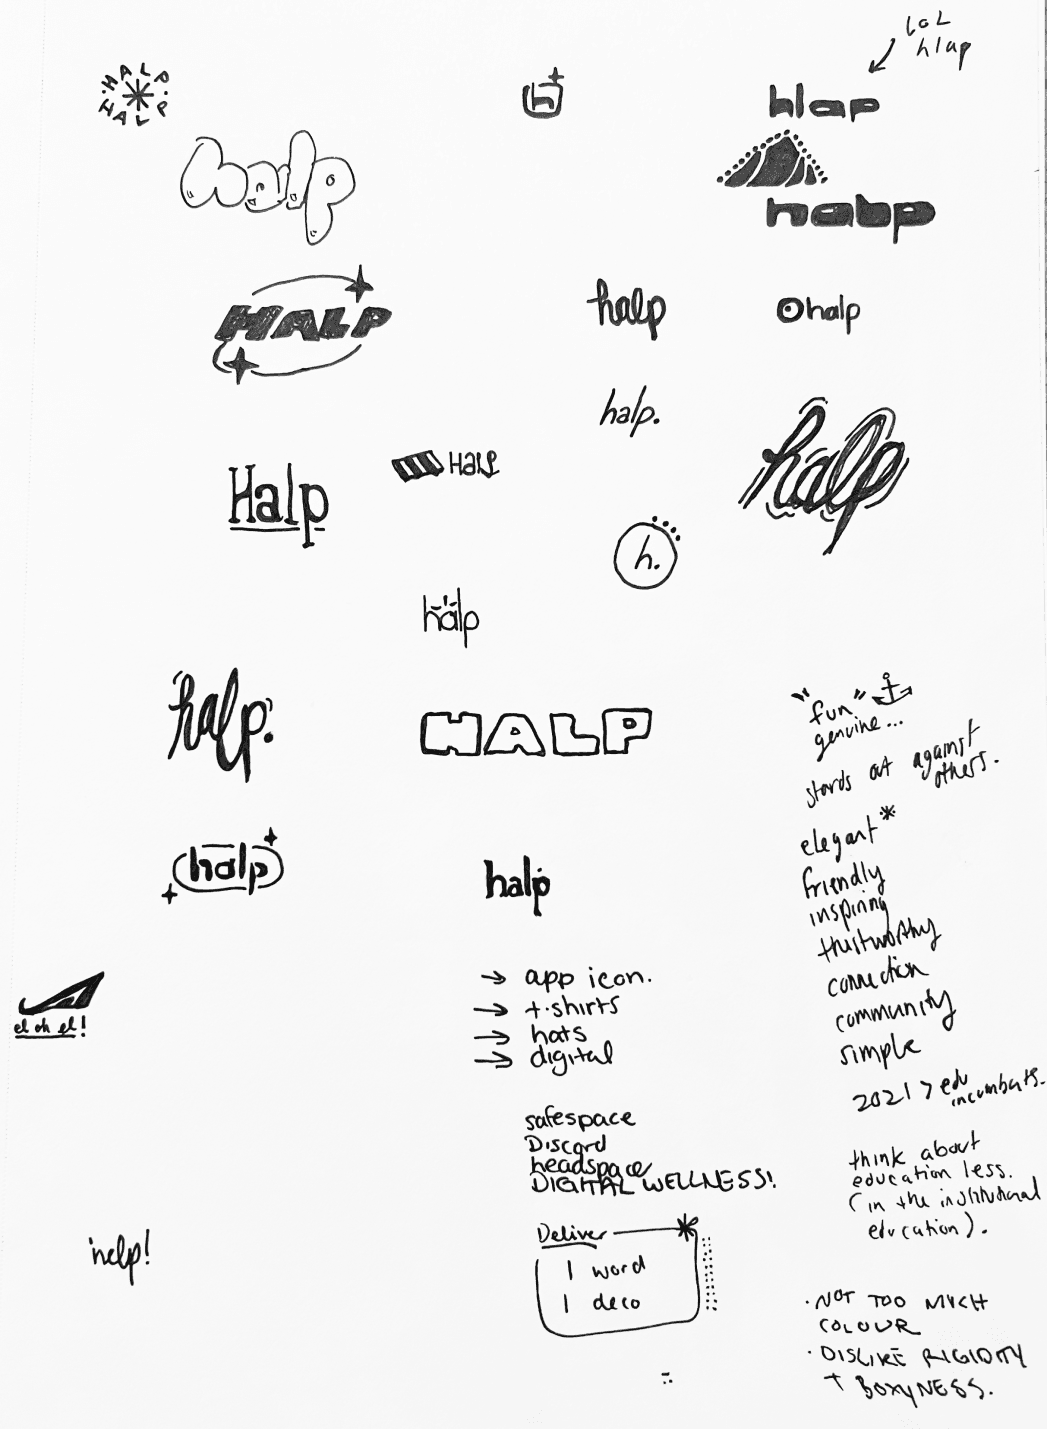 LOL
hlap
·HALP·
HALP
h
hlap
halp
halp
HALP
halp
halp
halp.
halp
HALP
Halp
h.
halp
halp.
HALP
"fun"
genuine...
stands out against
others.
halp
halp
elegant*
friendly
inspiring
trustworthy
connection
community
simple
2021 > edu
incumbents.
el oh el!
→ app icon.
→ t-shirts
→ hats
→ digital
safespace
Discord
headspace
DIGITAL WELLNESS!
think about
education less.
(in the institutional
education).
Deliver
1 word
1 deco
help!
· NOT TOO MUCH
COLOUR
· DISLIKE RIGIDITY
+ BOXYNESS.